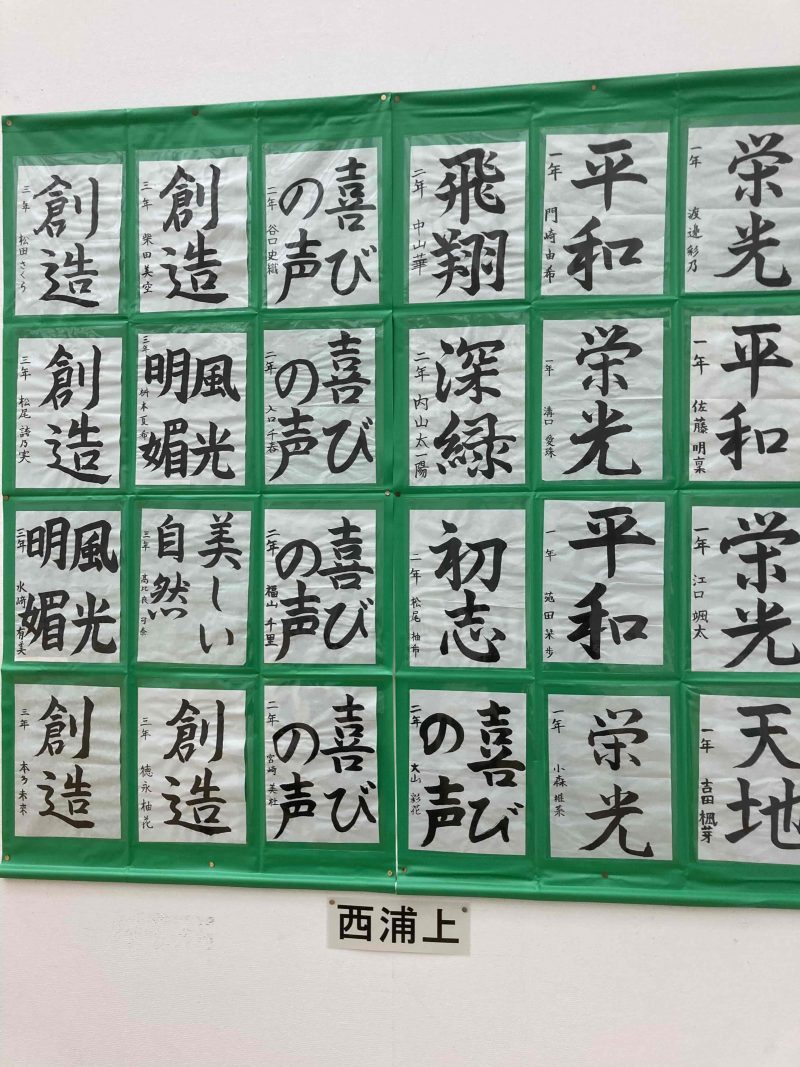 栄光
一年 渡邉彩乃
平和
一年 門崎由希
飛翔
二年 中山華
喜び
の声
二年 谷口史織
創造
三年 柴田美空
創造
三年 松田さくら
平和
一年 佐藤明稟
栄光
一年 溝口愛珠
深緑
二年 内山太一陽
喜び
の声
二年 入口千春
風光
明媚
三年 桝本夏希
創造
三年 松尾詩乃実
栄光
一年 江口颯太
平和
一年
初志
二年 松尾柚希
喜び
の声
二年 福山千里
美しい
自然
三年
風光
明媚
三年 水崎有美
天地
一年 吉田楓芽
栄光
一年 小森唯菜
喜び
の声
二年 大山彩花
喜び
の声
二年 宮崎美社
創造
三年 徳永柚花
創造
三年 本多未来
西浦上